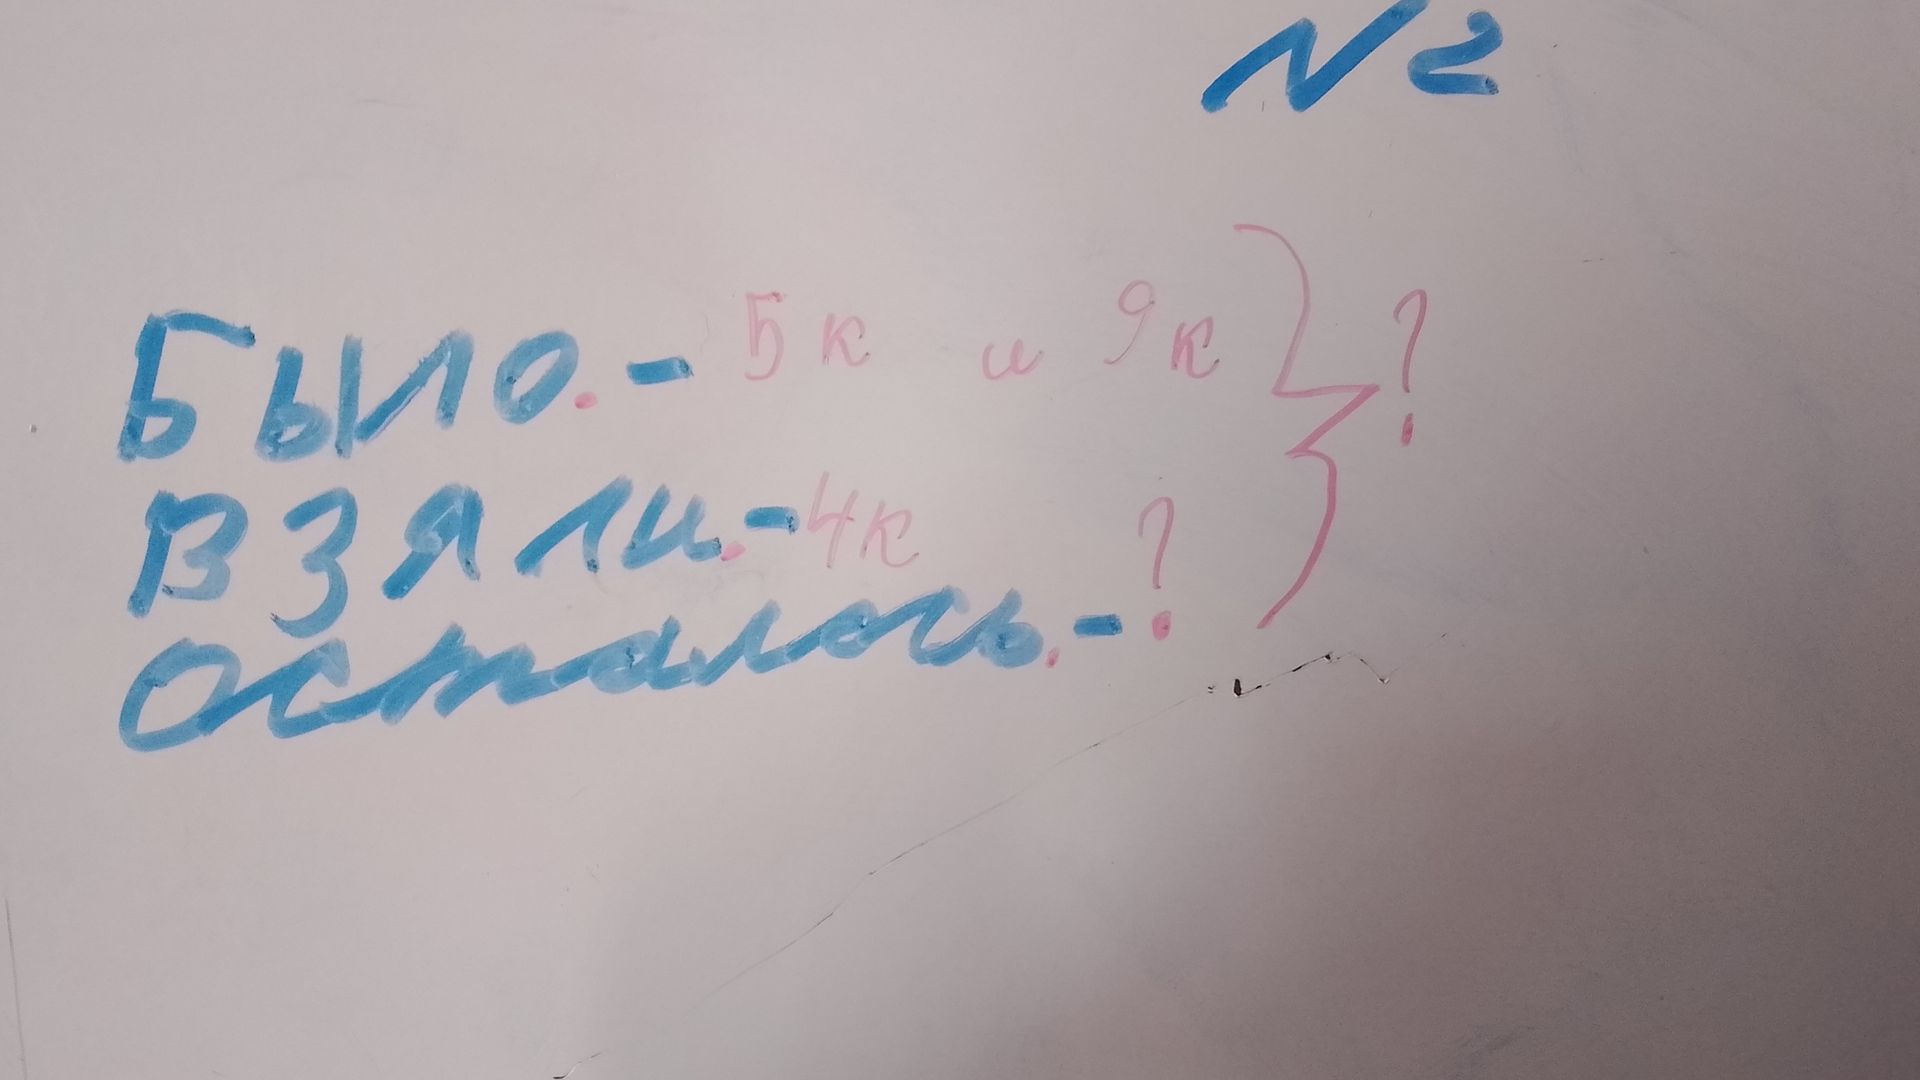 N 2
Было. - 5 к и 9 к } ?
Взяли. - 4 к
Осталось. - ?